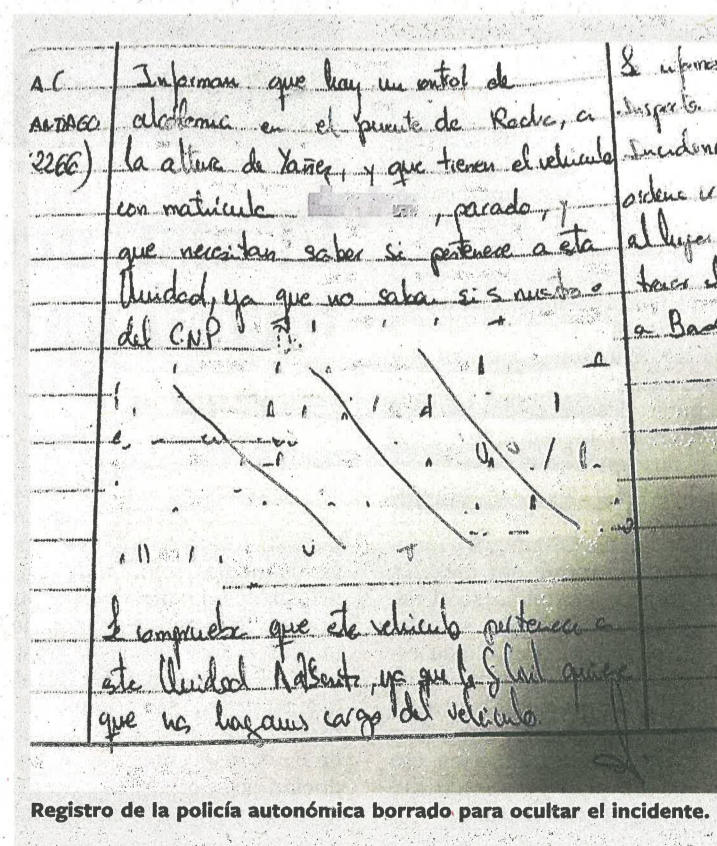 A.C
ANTIAGO
2266)
Informan que hay un control de
alcolemia en el puente de Rocha, a
la altura de Yañez, y que tienen el vehiculo
con matricula , parado, y
que necesitan saber si pertenece a esta
Unidad, ya que no saben si s nuestro o
del C.N.P
Se comprueba que este vehiculo pertenece a
esta Unidad Adscrita, ya que la G. Civil quiere
que nos hagamos cargo del vehiculo.
Se informa
Inspector
Inciden
ordena ir
al lugar
traer el
a Bas
Registro de la policía autonómica borrado para ocultar el incidente.